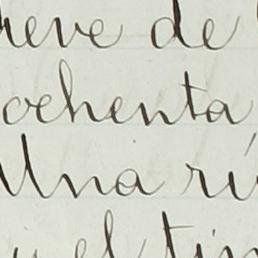 neve de
ochenta
Una rí
y el tin